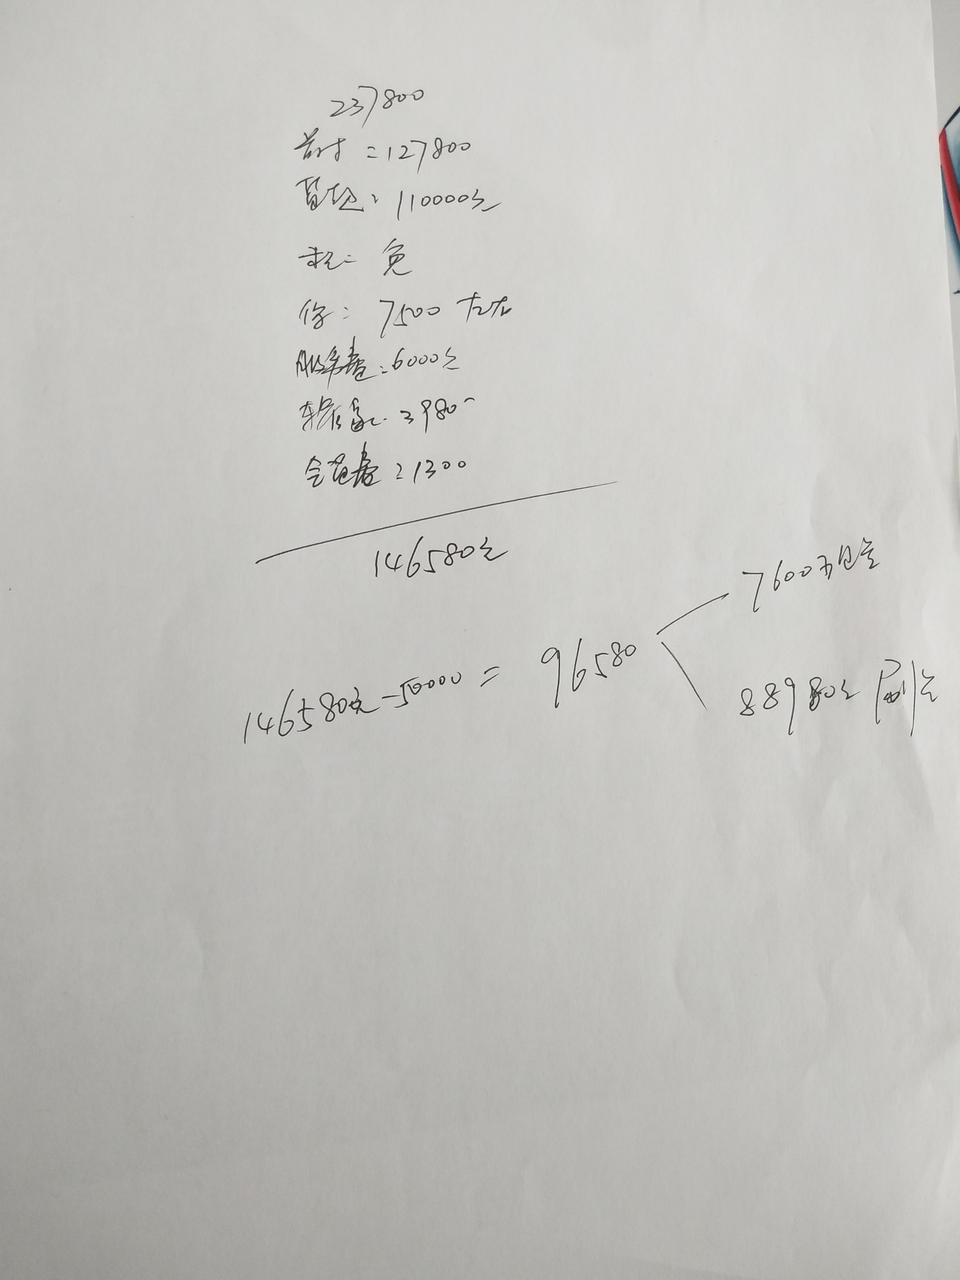 237800
首付=127800
贷款:110000元
税=免
保:7500左右
服务费:6000元
3980
1300
146580元
146580元-50000=96580
7600
88980元刷